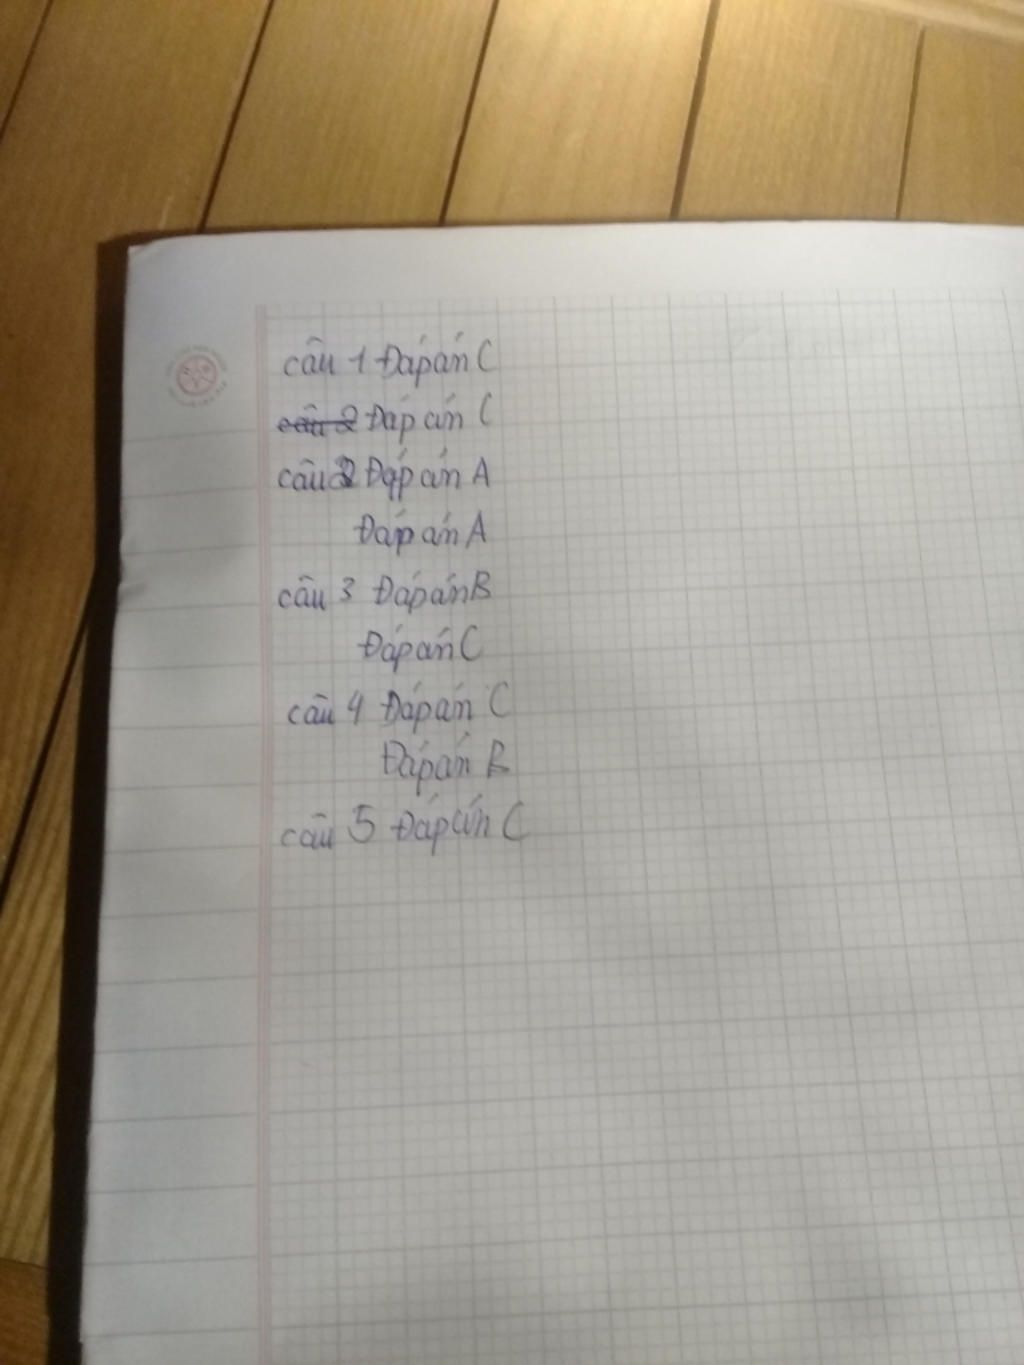 câu 1 Đáp án C
câu 2 Đáp án C
câu 2 Đáp án A
Đáp án A
câu 3 Đáp án B
Đáp án C
câu 4 Đáp án C
Đáp án B
câu 5 Đáp án C